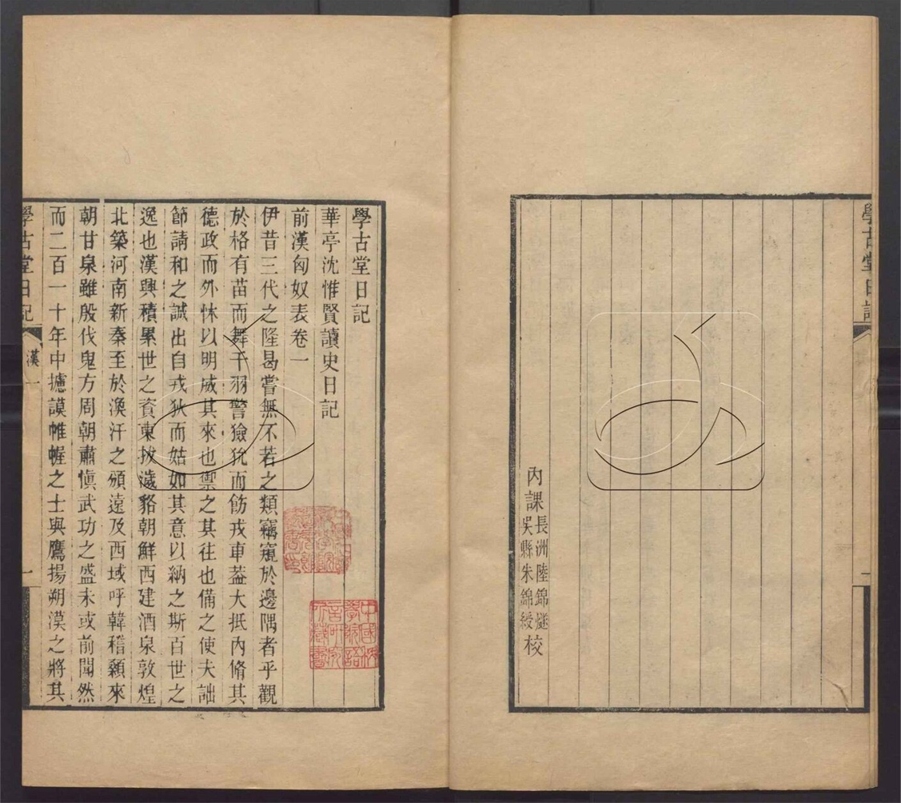 學古堂日記
內課長洲陸錦燧
吳縣朱錦綬校
學古堂日記
華亭沈惟賢讀史日記
前漢匈奴表卷一
伊昔三代之隆曷嘗無不若之類竊窺於邊隅者乎觀
於格有苗而舞干羽警獫狁而飭戎車蓋大抵內脩其
德政而外怵以明威其來也禦之其往也備之使夫詘
節請和之誠出自戎狄而姑如其意以納之斯百世之
逸也漢興積累世之資東拔濊貉朝鮮西建酒泉敦煌
北築河南新秦至於渙汗之頒遠及西域呼韓稽顙來
朝甘泉雖殷伐鬼方周朝肅愼武功之盛未或前聞然
而二百一十年中壚謨帷幄之士與鷹揚朔漠之將其
學古堂日記
漢一
一